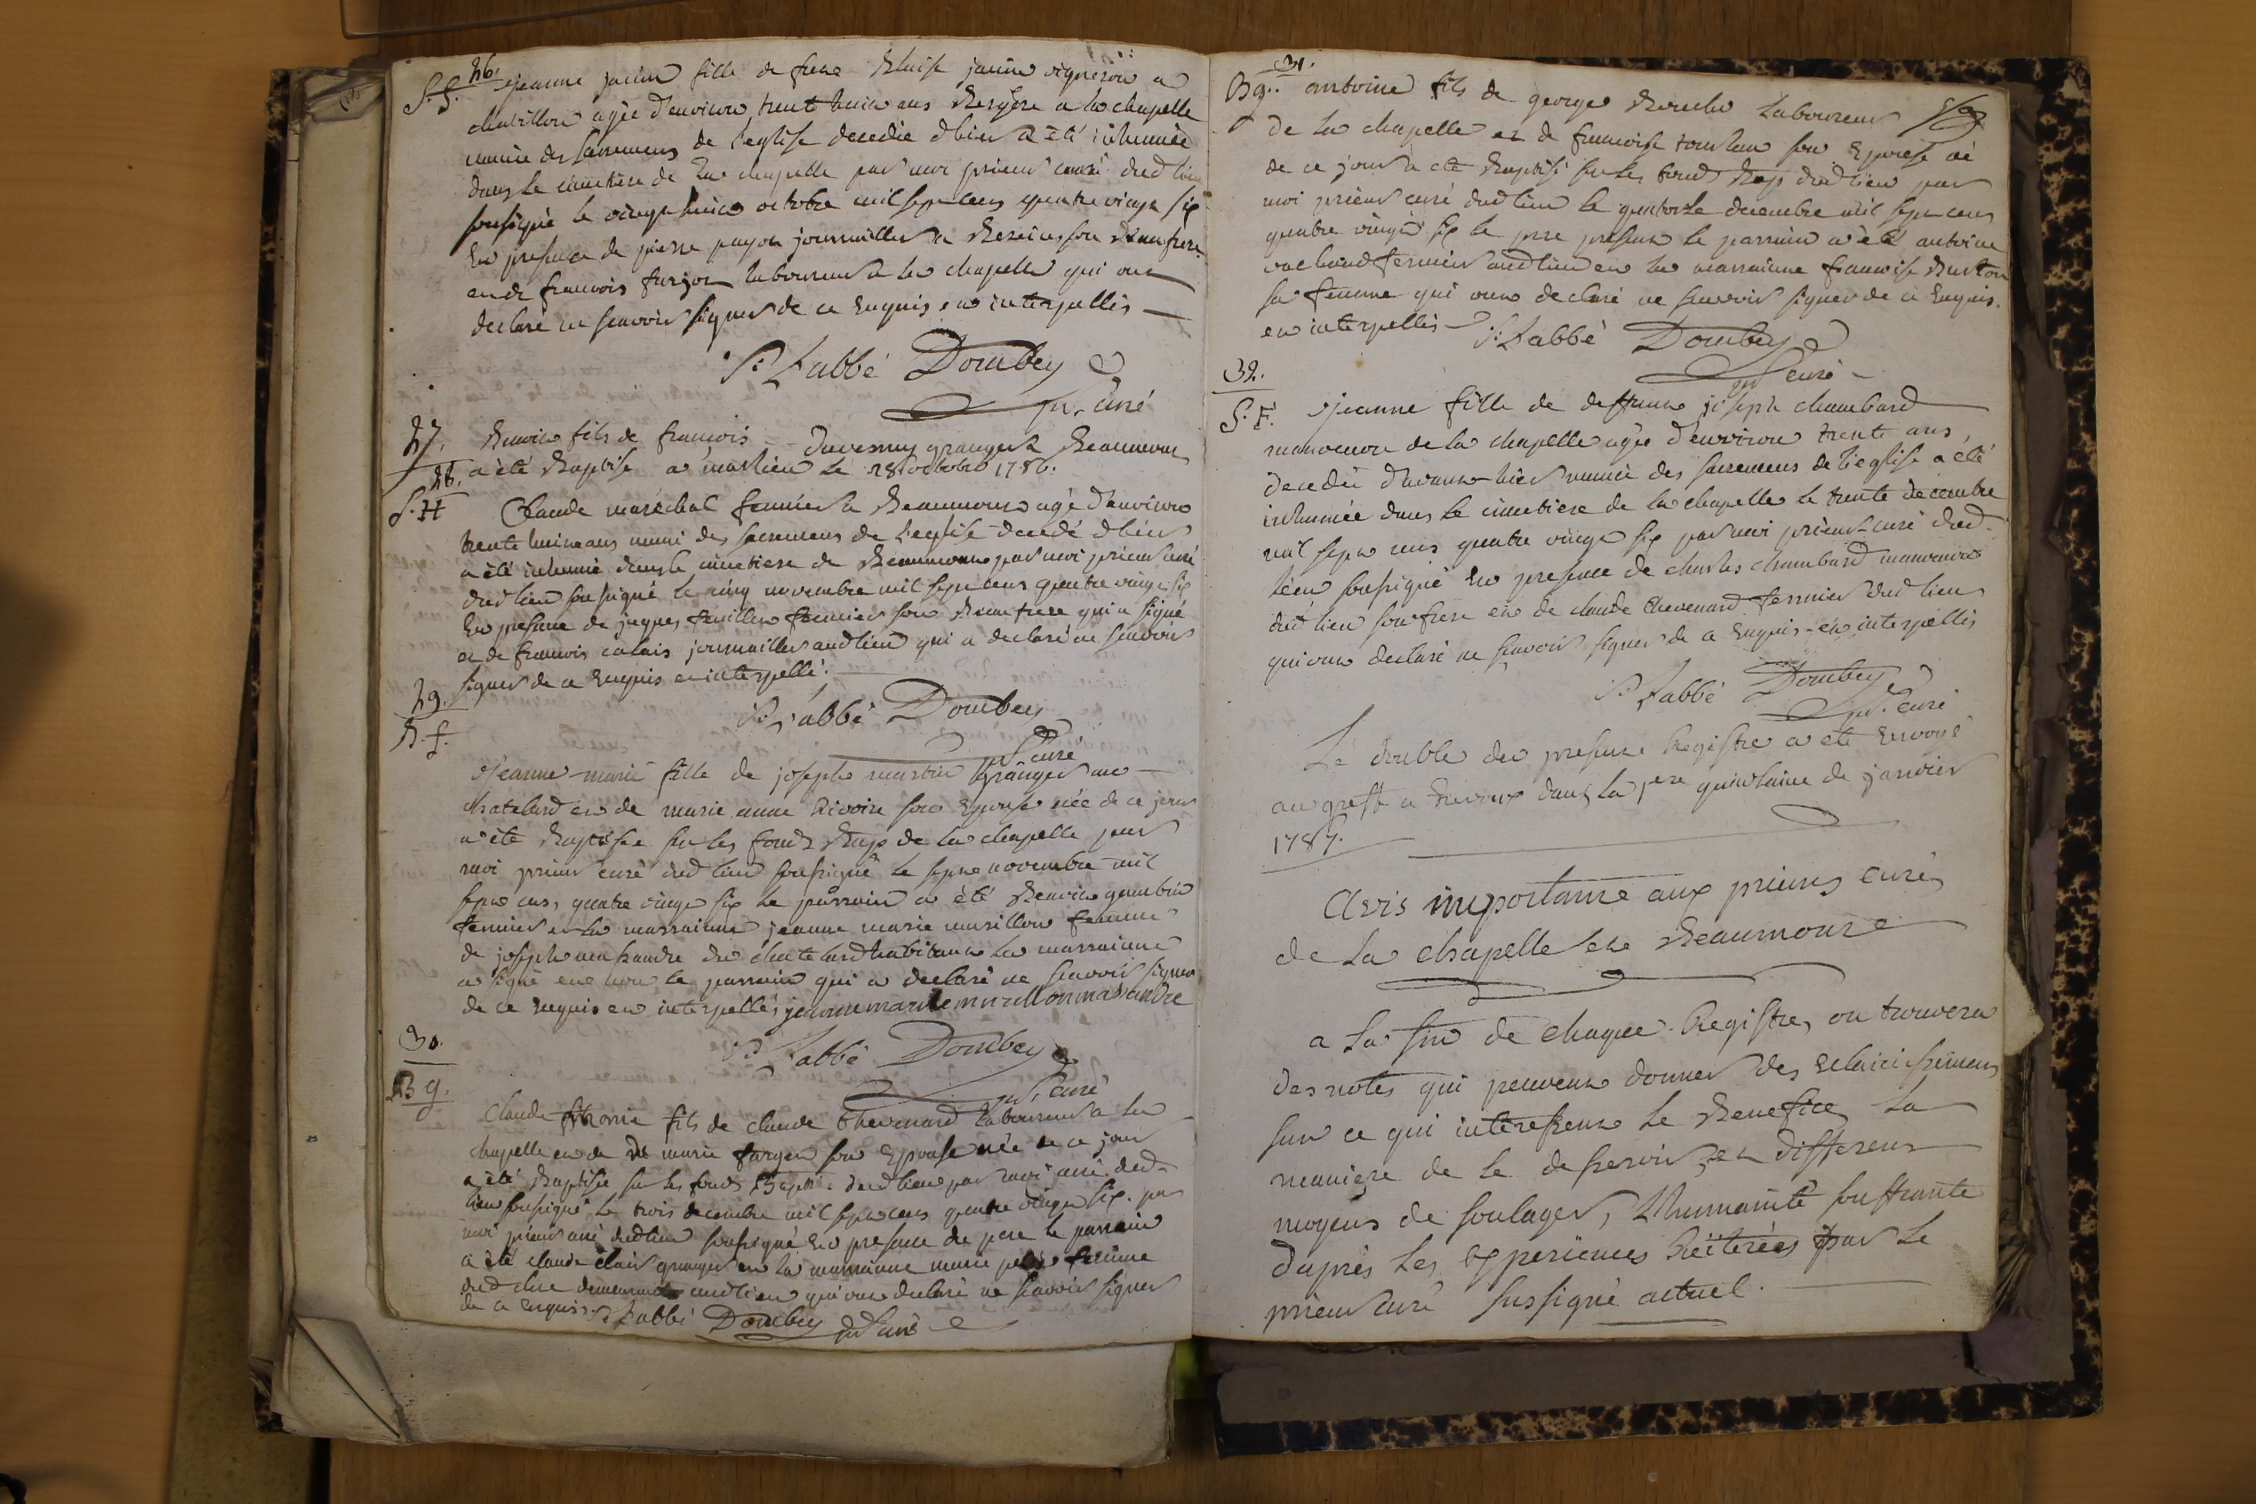 26.
S. f. jeanne janin fille de feue Blaise janin vigneron a
chatillon agée d'environ trent huit ans Bergere a la chapelle
munie des sacremens de l'eglise decedée d'hier a été inhumée
dans le cimetiere de la chapelle par moi prieur curé dud lieu
soussigné le vingt huit octobre mil sept cens quatre vingt six
En presence de pierre payon journaillier a son Beaufrere
et de francois furjon laboureur a la chapelle qui ont
declaré ne scavoir signer de ce Enquis et interpellés
P: Labbé Dombey
pr. curé
27. Benoit fils de francois Duvernay granger a Beaumont
a été Baptisé a marlieu le 28 octobre 1786.
28.
S. H Claude maréchal fermier a Beaumont agé d'environ
trente huit ans muni des sacremens de l'eglise decedé d'hier
a été inhumé dans le cimetiere de Beaumont par moi prieur curé
dud lieu soussigné le cinq novembre mil sept cens quatre vingt six
En presence de jaques fermier son Beaufrere qui a signé
et de francois calais journaillier aud lieu qui a declaré ne scavoir
signer de ce Enquis et interpellé.
P: Labbé Dombey
pr curé
29.
B. f.
Jeanne-marie fille de joseph martin granger au
chatelard et de marie anne Rivoire son Epouse née de ce jour
a été Baptisée sur les fonds Bap de la chapelle par
moi prieur curé dud lieu soussigné le sept novembre mil
sept cens quatre vingt six le parrain a été Benoit gambin
fermier et la marrainne jeanne marie murillon femme
de joseph machandre du chatelard habitant la marrainne
a signé et non le parrain qui a declaré ne scavoir signer
de ce Enquis et interpellés jeanne marie murillon machandre
P: Labbé Dombey
pr. curé
30.
B g. Claude fils de claude thevenard laboureur a la
chapelle et de marie furgon son Epouse né de ce jour
a été Baptisé sur les fonds Bapt: dud lieu par moi curé dud
lieu soussigné le trois decembre mil sept cens quatre vingt six. par
moi prieur curé dud lieu soussigné En presence du pere le parrain
a été claude clair granger et la marrainne marie femme
dud clair demeurant aud lieu qui ont declaré ne scavoir signer
de ce enquis. P: Labbé Dombey pr curé
31.
B g. antoine fils de george Bouchu Laboureur
de la chapelle et de francoise son Epouse né
de ce jour a été Baptisé sur les fonds Bap dud lieu par
moi prieur curé dud lieu le quatorze decembre mil sept cens
quatre vingt six le pere present le parrain a été antoine
fermier aud lieu et la marrainne francoise Burton
sa femme qui ont declaré ne scavoir signer de ce Enquis
et interpellés P: Labbé Dombey
pr curé
32.
S. F. Jeanne fille de deffunt joseph chambard
manoeuvre de la chapelle agée d'environ trente ans,
decedée d'avant-hier munie des sacremens de l'eglise a été
inhumée dans le cimetiere de la chapelle le trente decembre
mil sept cens quatre vingt six par moi prieur curé dud
lieu soussigné En presence de charles chambard manoeuvre
dud lieu son frere et de claude thevenard fermier dud lieu
qui ont declaré ne scavoir signer de ce Enquis et interpellés
P: Labbé Dombey
pr. curé
Le double du present Registre a été Envoyé
au greffe a trevoux dans la 1ere quinzaine de janvier
1787.
Avis important aux prieurs curés
de La chapelle et Beaumont
a la fin de chaque Registre, on trouvera
des notes qui peuvent donner des Eclaircissemens
sur ce qui interessent le Benefice, la
maniere de le desservir, et differens
moyens de soulager, L'humanité souffrante
d'après les Experiences Réiterées par le
prieur curé sussigné actuel.